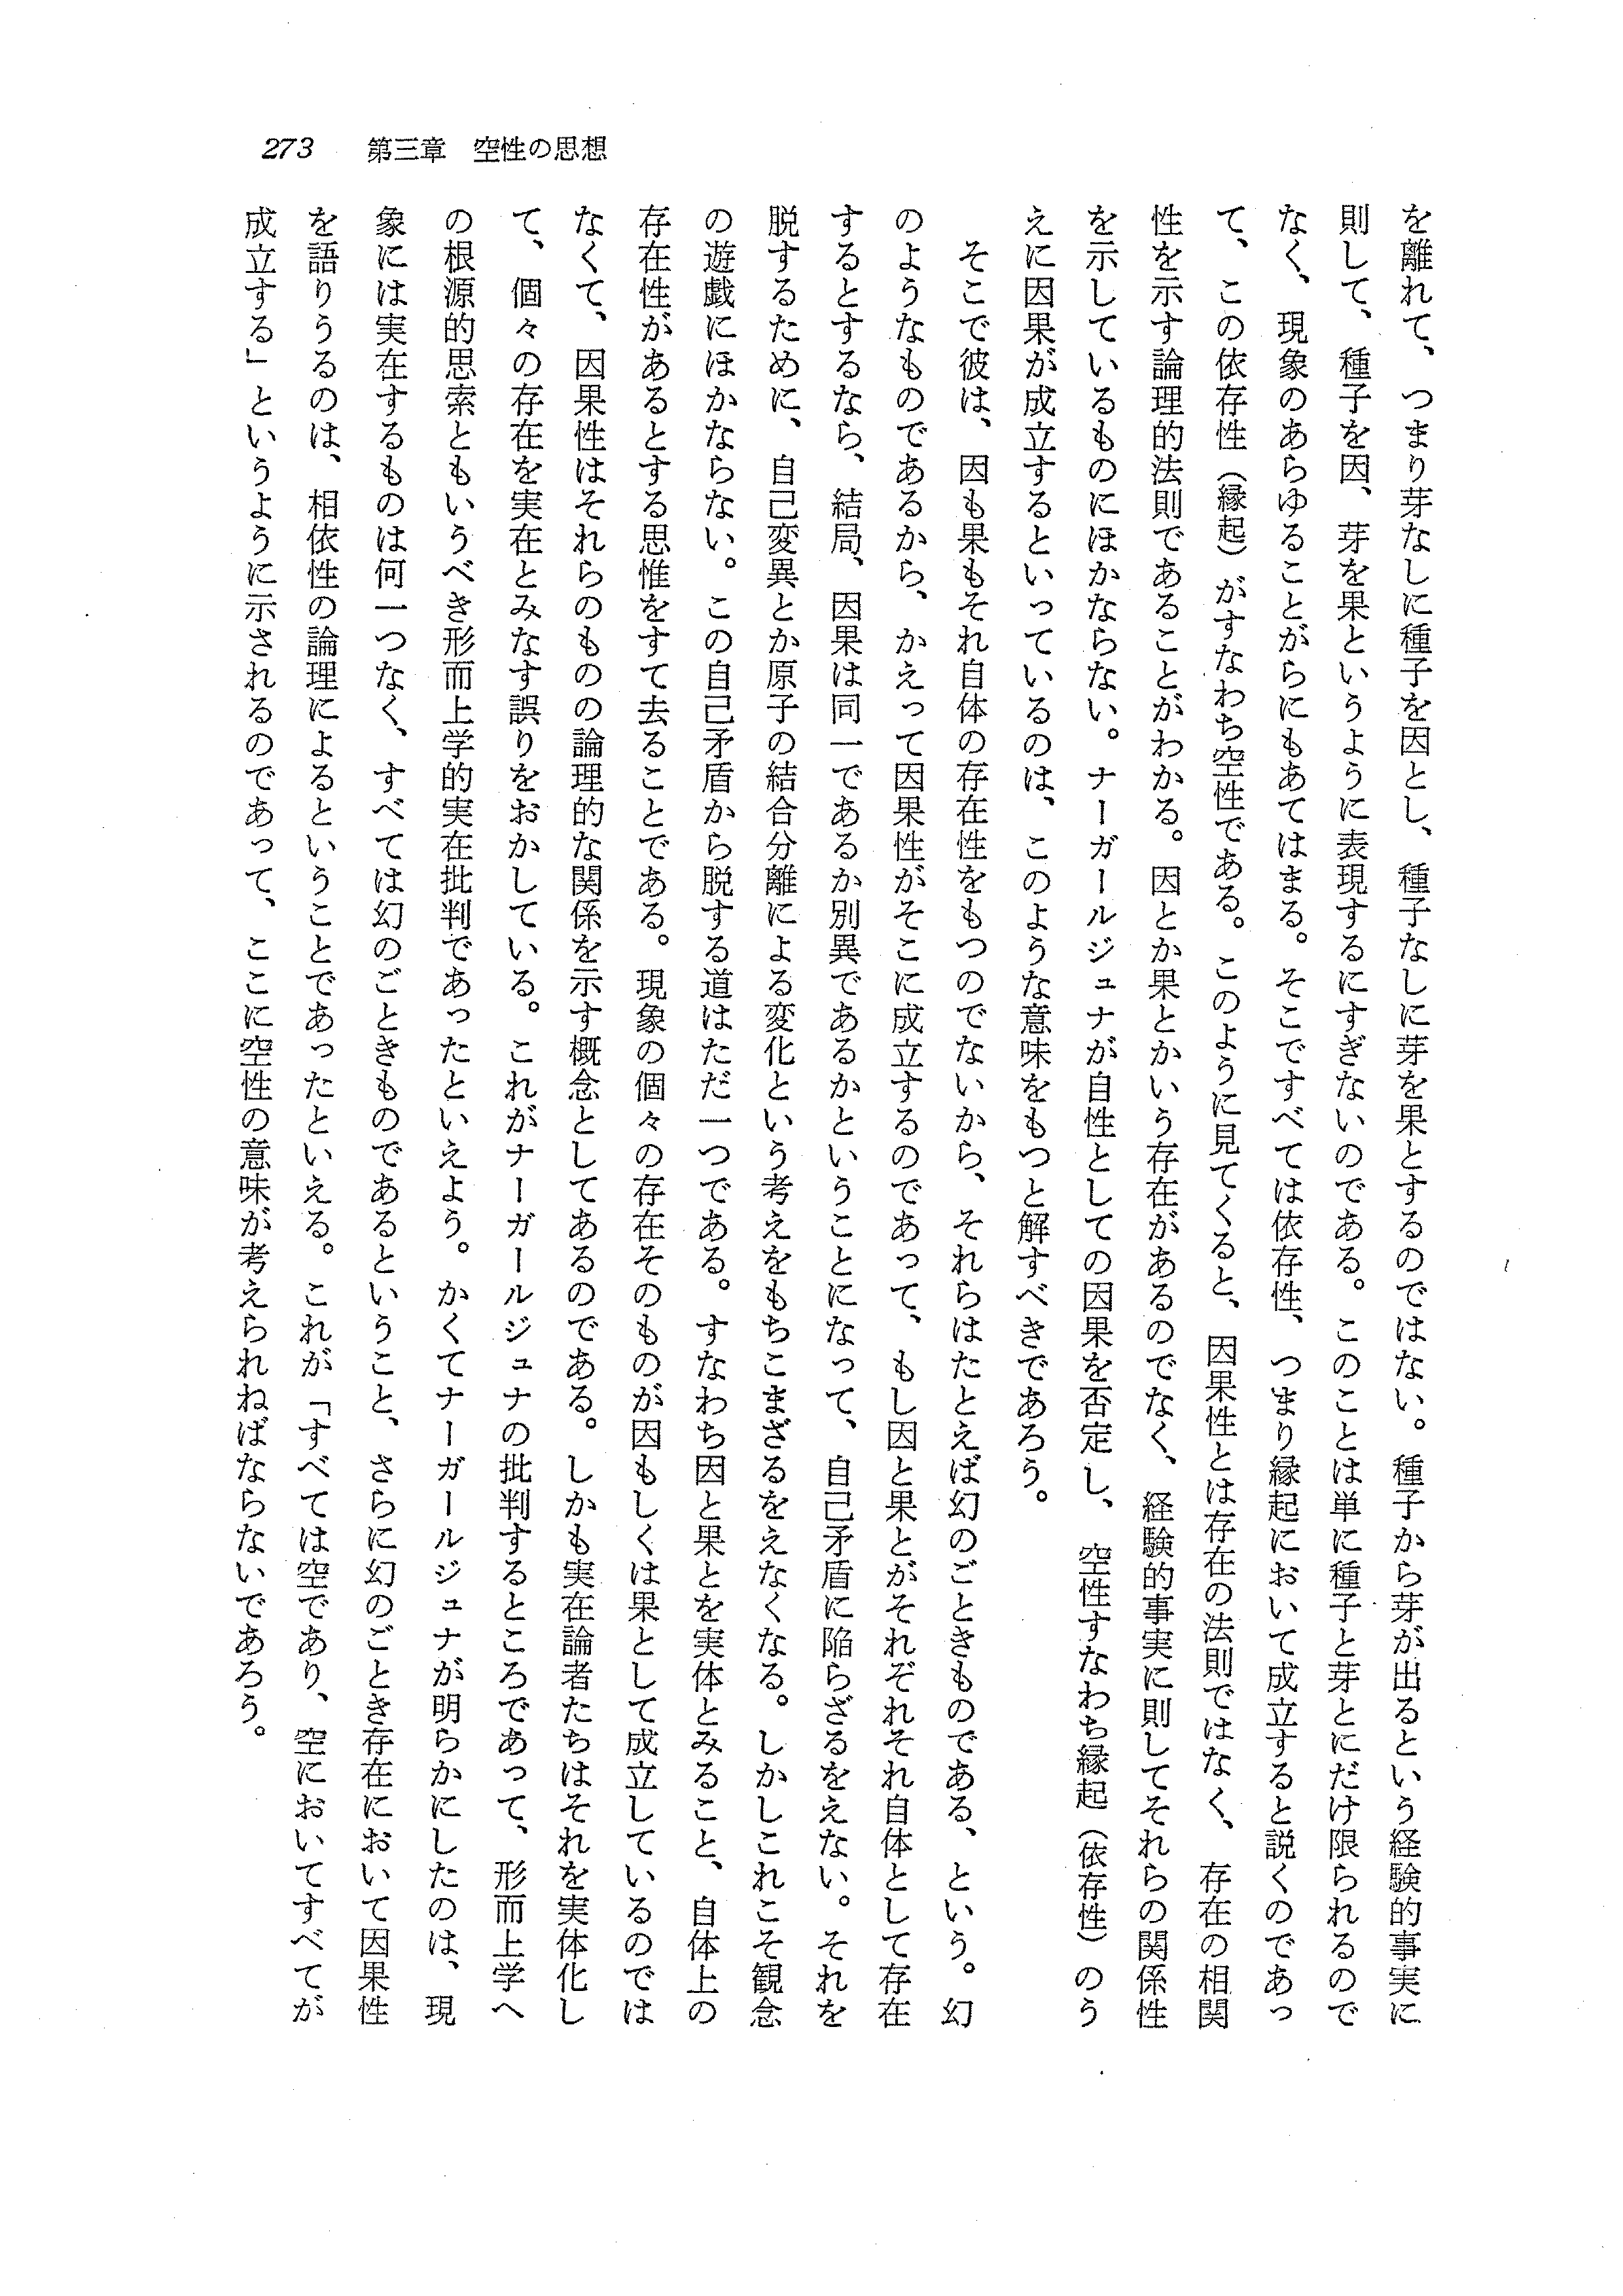 273　第三章　空性の思想
を離れて、つまり芽なしに種子を因とし、種子なしに芽を果とするのではない。種子から芽が出るという経験的事実に
則して、種子を因、芽を果というように表現するにすぎないのである。このことは単に種子と芽とにだけ限られるので
なく、現象のあらゆることがらにもあてはまる。そこですべては依存性、つまり縁起において成立すると説くのであっ
て、この依存性（縁起）がすなわち空性である。このように見てくると、因果性とは存在の法則ではなく、存在の相関
性を示す論理的法則であることがわかる。因とか果とかいう存在があるのでなく、経験的事実に則してそれらの関係性
を示しているものにほかならない。ナーガールジュナが自性としての因果を否定し、空性すなわち縁起（依存性）のう
えに因果が成立するといっているのは、このような意味をもつと解すべきであろう。
　そこで彼は、因も果もそれ自体の存在性をもつのでないから、それらはたとえば幻のごときものである、という。幻
のようなものであるから、かえって因果性がそこに成立するのであって、もし因と果とがそれぞれそれ自体として存在
するとするなら、結局、因果は同一であるか別異であるかということになって、自己矛盾に陥らざるをえない。それを
脱するために、自己変異とか原子の結合分離による変化という考えをもちこまざるをえなくなる。しかしこれこそ観念
の遊戯にほかならない。この自己矛盾から脱する道はただ一つである。すなわち因と果とを実体とみること、自体上の
存在性があるとする思惟をすて去ることである。現象の個々の存在そのものが因もしくは果として成立しているのでは
なくて、因果性はそれらのものの論理的な関係を示す概念としてあるのである。しかも実在論者たちはそれを実体化し
て、個々の存在を実在とみなす誤りをおかしている。これがナーガールジュナの批判するところであって、形而上学へ
の根源的思索ともいうべき形而上学的実在批判であったといえよう。かくてナーガールジュナが明らかにしたのは、現
象には実在するものは何一つなく、すべては幻のごときものであるということ、さらに幻のごとき存在において因果性
を語りうるのは、相依性の論理によるということであったといえる。これが「すべては空であり、空においてすべてが
成立する」というように示されるのであって、ここに空性の意味が考えられねばならないであろう。